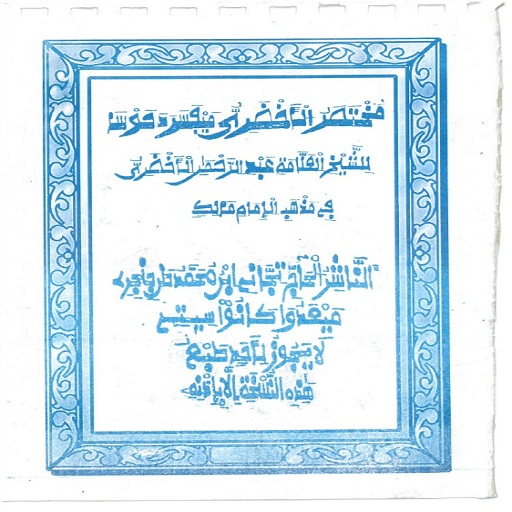 مختصر الأخضري
للشيخ العلامة عبد الرحمن الأخضري
في مذهب الإمام مالك
الناشر الحاج تجاني ابن محمد
كانوا سيتي
لا يجوز لأحد طبع
هذه النسخة إلا بإذنه